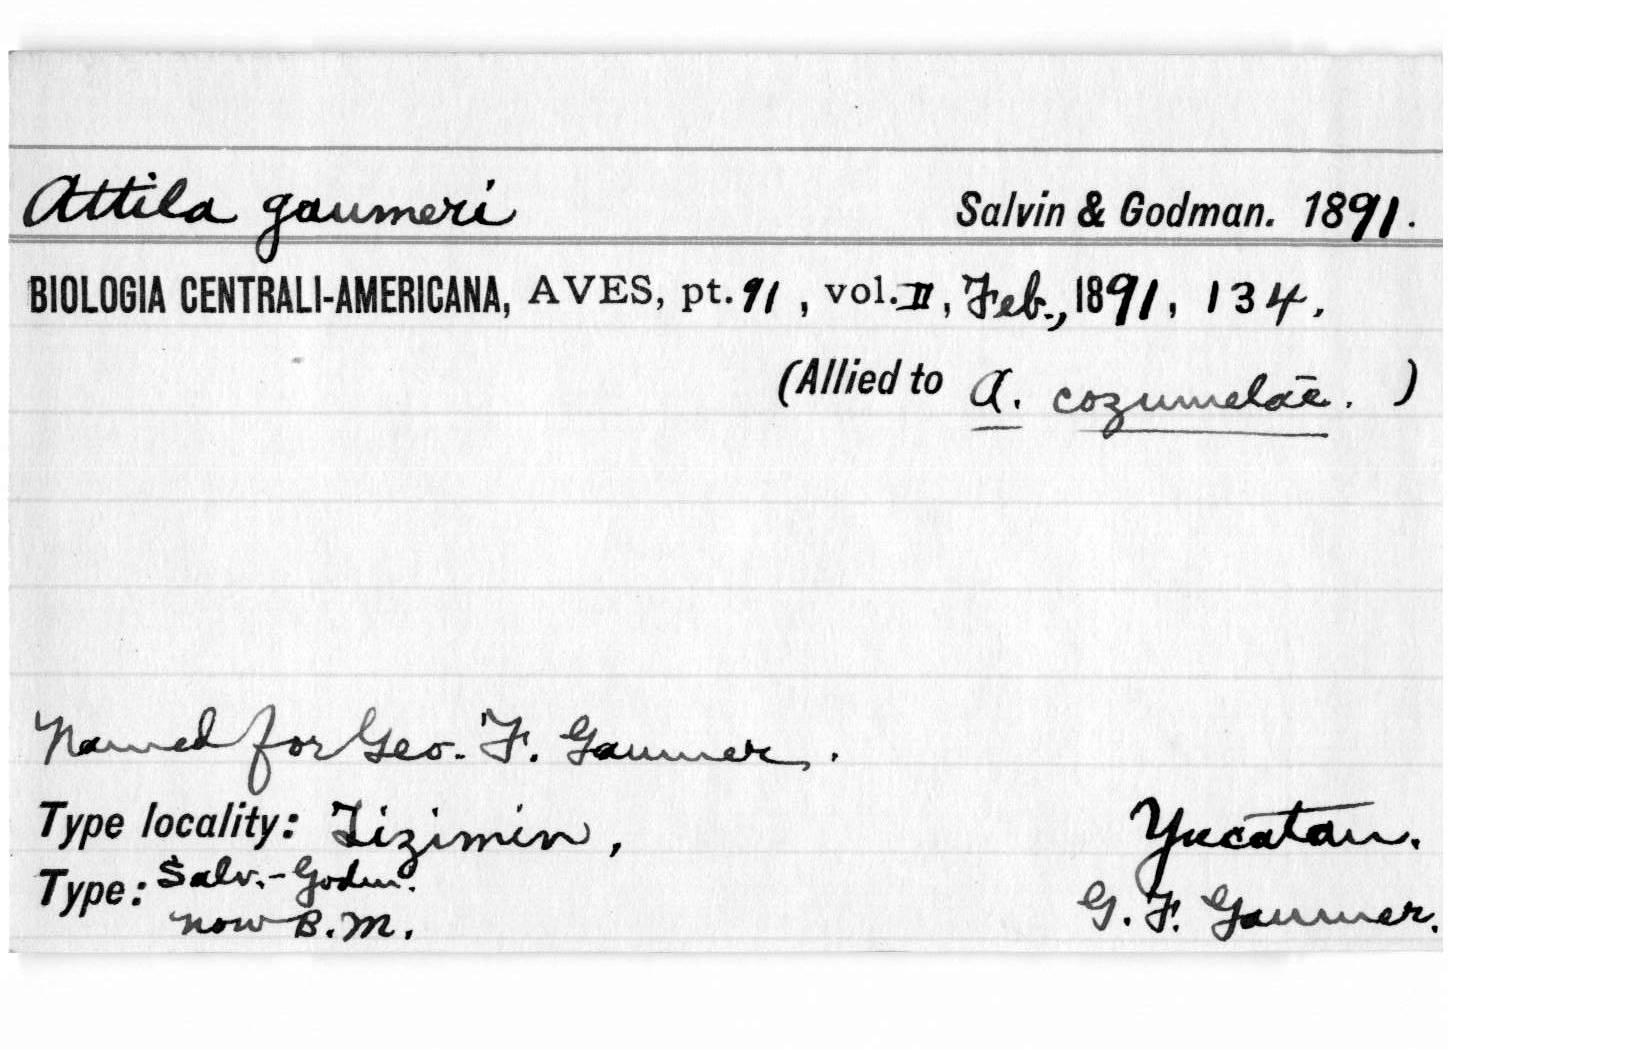 Attila gaumeri Salvin & Godman. 1891.
BIOLOGIA CENTRALI-AMERICANA, AVES, pt. 91, vol. II, Feb., 1891, 134.
(Allied to A. cozumelae.)
Named for Geo. F. Gaumer.
Type locality: Tizimin, Yucatan.
Type: Salv.-Godm. G. F. Gaumer.
now B.M.